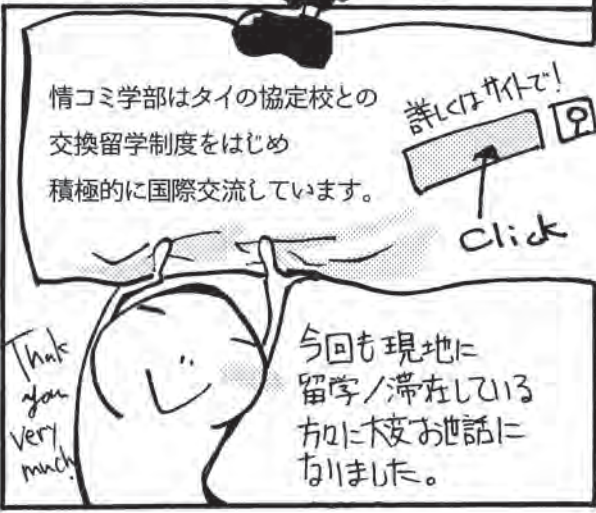 情コミ学部はタイの協定校との
交換留学制度をはじめ
積極的に国際交流しています。
詳しくはサイトで!
Click
Thak
you
very
much
今回も現地に
留学/滞在している
方々に大変お世話に
なりました。